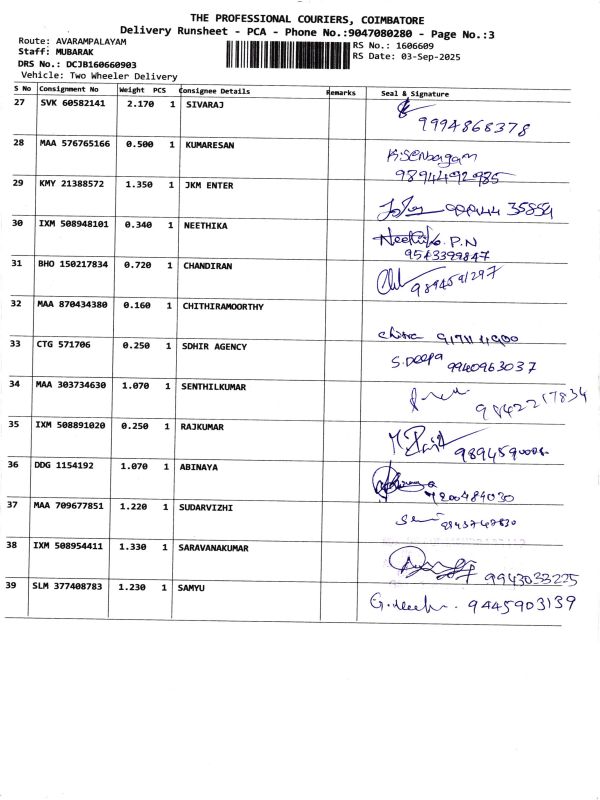 THE PROFESSIONAL COURIERS, COIMBATORE
Delivery Runsheet - PCA - Phone No.:9047080280 - Page No.:3
Route: AVARAMPALAYAM RS No.: 1606609
Staff: MUBARAK RS Date: 03-Sep-2025
DRS No.: DCJB160660903
Vehicle: Two Wheeler Delivery
S No Consignment No Weight PCS Consignee Details Remarks Seal & Signature
27 SVK 60582141 2.170 1 SIVARAJ
9994868378
28 MAA 576765166 0.500 1 KUMARESAN
K.Senbagam
9894492985
29 KMY 21388572 1.350 1 JKM ENTER
30 IXM 508948101 0.340 1 NEETHIKA
Neethika P.N
9543399847
31 BHO 150217834 0.720 1 CHANDIRAN
9894591297
32 MAA 870434380 0.160 1 CHITHIRAMOORTHY
chitra
33 CTG 571706 0.250 1 SDHIR AGENCY
S.Deepa 9940963037
34 MAA 303734630 1.070 1 SENTHILKUMAR
9842217834
35 IXM 508891020 0.250 1 RAJKUMAR
36 DDG 1154192 1.070 1 ABINAYA
7200484030
37 MAA 709677851 1.220 1 SUDARVIZHI
38 IXM 508954411 1.330 1 SARAVANAKUMAR
9943033225
39 SLM 377408783 1.230 1 SAMYU
9445903139